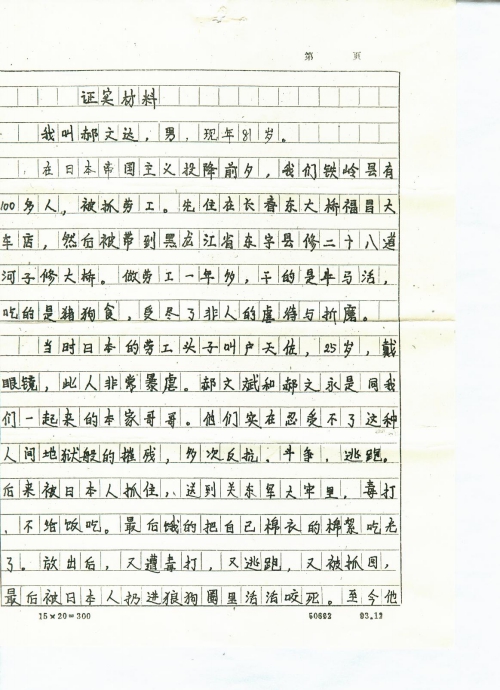 第 页
证实材料
我叫郝文达，男，现年81岁。
在日本帝国主义投降前夕，我们铁岭县有
100多人，被抓劳工。先住在长春东大桥福昌大
车店，然后被带到黑龙江省东宁县修二十八道
河子修大桥。做劳工一年多，干的是牛马活，
吃的是猪狗食，受尽了非人的虐待与折磨。
当时日本的劳工头子叫户天佐，25岁，戴
眼镜，此人非常暴虐。郝文斌和郝文永是同我
们一起来的本家哥哥。他们实在忍受不了这种
人间地狱般的摧残，多次反抗、斗争，逃跑。
后来被日本人抓住，送到关东军大牢里，毒打
、不给饭吃。最后饿的把自己棉衣的棉絮吃光
了。放出后，又遭毒打，又逃跑，又被抓回，
最后被日本人扔进狼狗圈里活活咬死。至今他
15×20=300 93.12